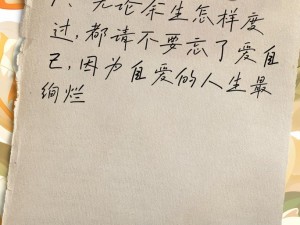 八、无论余生怎样度
过,都请不要忘了爱自
己,因为自爱的人生最
绚烂